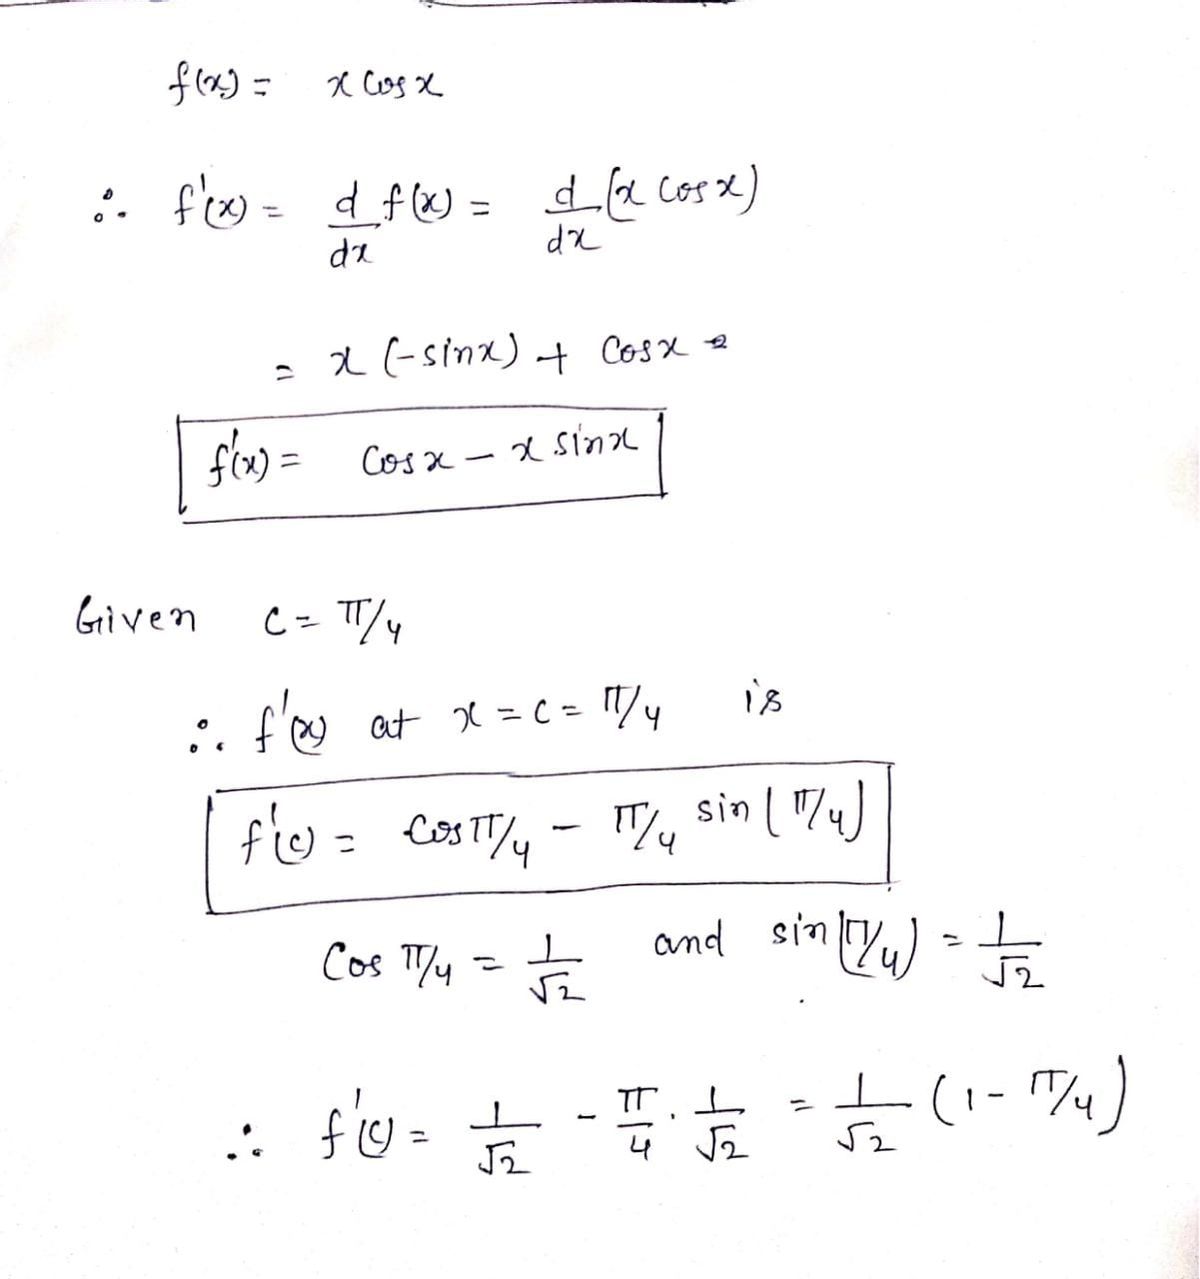 f(x) = x cos x
∴ f'(x) = d/dx f(x) = d/dx (x cos x)
= x (-sinx) + cosx
f'(x) = cos x - x sinx
Given c = π/4
∴ f'(x) at x = c = π/4 is
f'(c) = cos π/4 - π/4 sin (π/4)
Cos π/4 = 1/√2 and sin(π/4) = 1/√2
∴ f'(c) = 1/√2 - π/4 . 1/√2 = 1/√2 (1 - π/4)